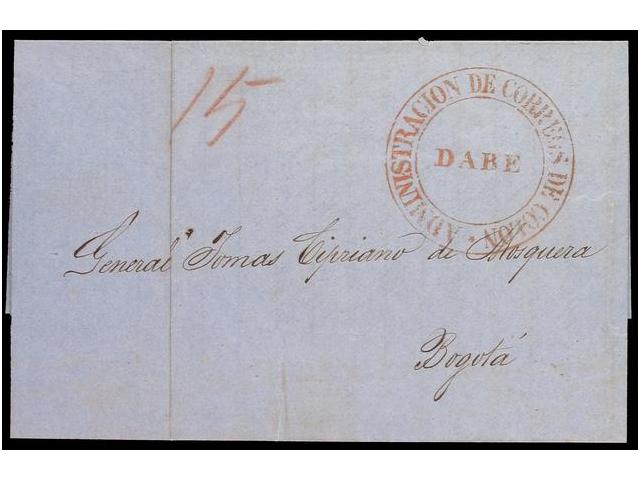 15
ADMINISTRACION DE CORREOS DE COLON
DABE
General Tomas Cipriano de Mosquera
Bogotá